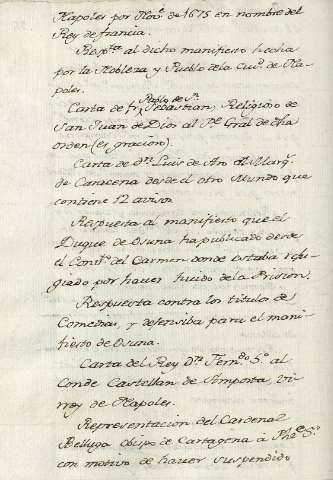 Napoles por Nov.e de 1675 en nombre del
Rey de francia.
Resp.ta al dicho manifiesto hecha
por la Nobleza y Pueblo de la Ciu.d de Na-
poles.
Carta de fr. Pablo de Sn. Sebastian, Religioso de
San Juan de Dios al Pe. Gral de dha
orden (es gracioso)
Carta de dn. Luis de Aro al Marq.s
de Caracena desde el otro Mundo que
contiene 12 avisos
Respuesta al manifiesto que el
Duque de Osuna ha publicado desde
el Conv.to del Carmen donde estaba refu-
giado por haver huido de la Prision.
Respuesta contra los titulos de
Comedias, y defensiba para el mani-
fiesto de Osuna.
Carta del Rey Dn. Fern.do 5.o al
Conde Castellan de Amposta, Vir-
rey de Napoles.
Representacion del Cardenal
Belluga obispo de Cartagena a Phe 5.o
con motivo de haver suspendido